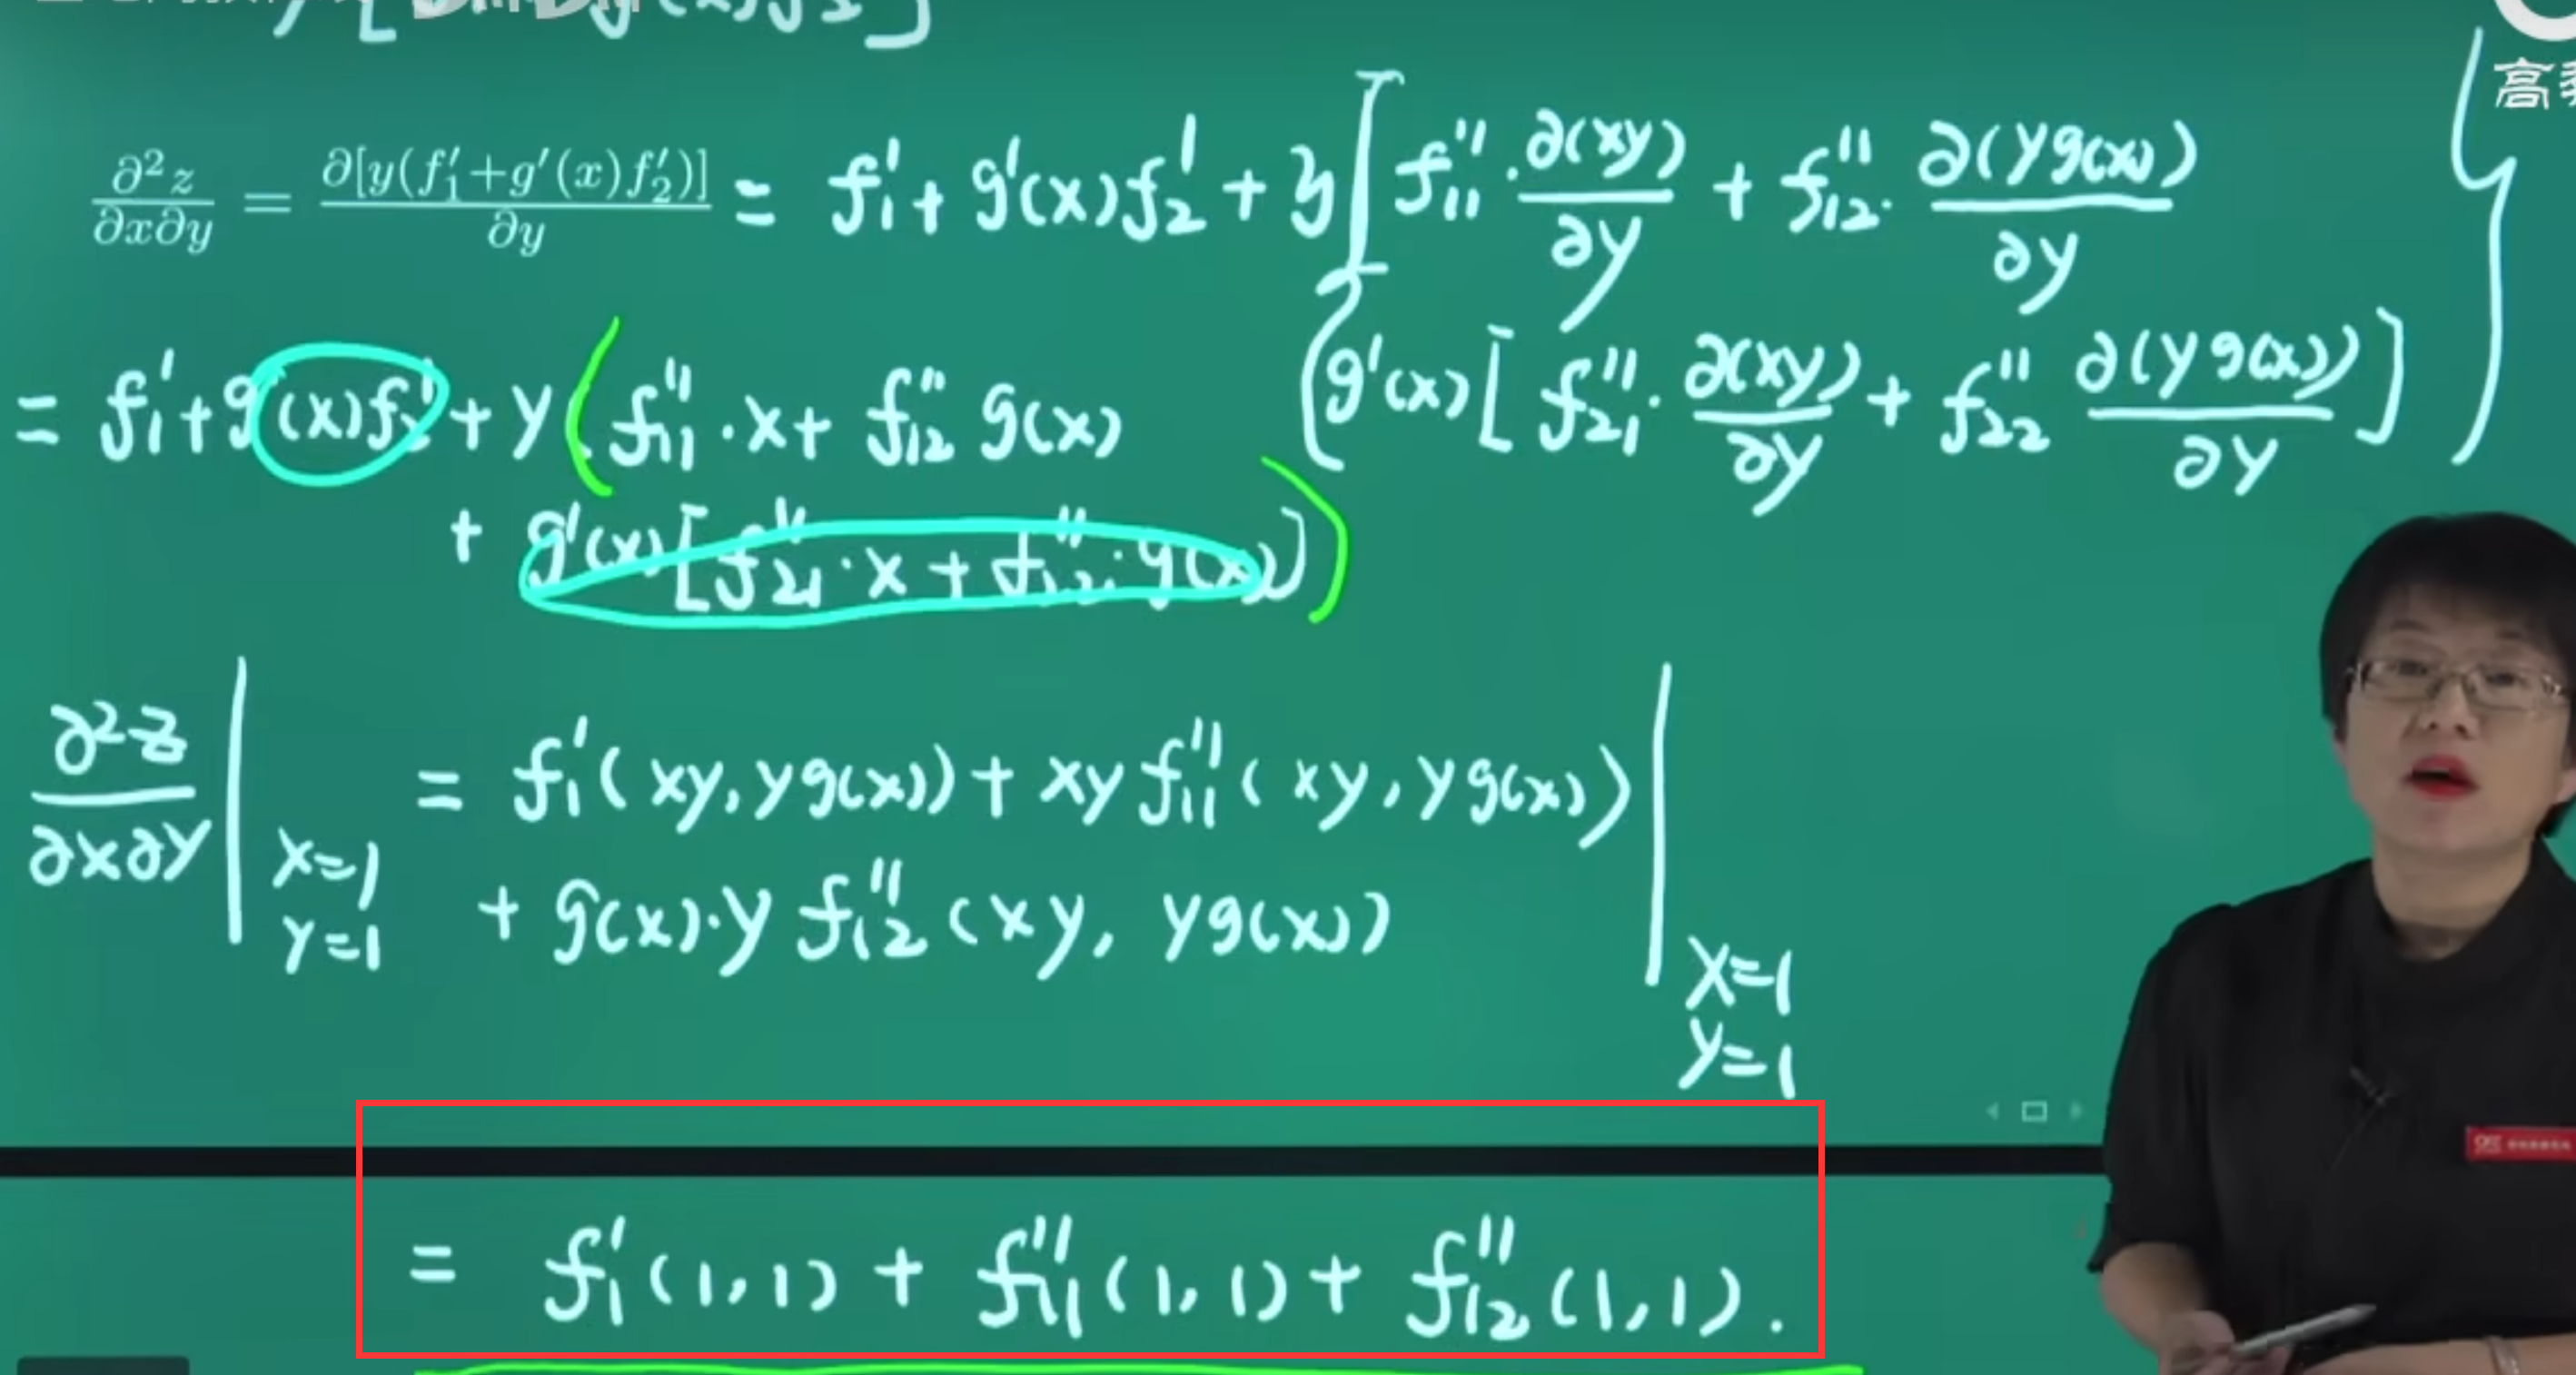 ∂²z/∂x∂y = ∂[y(f₁′+g′(x)f₂′)]/∂y = f₁′ + g′(x)f₂′ + y[f₁₁″·∂(xy)/∂y + f₁₂″·∂(yg(x))/∂y
(g′(x)[f₂₁″·∂(xy)/∂y + f₂₂″ ∂(yg(x))/∂y]}
= f₁′+g′(x)f₂′ + y(f₁₁″·x + f₁₂″ g(x)
+ g′(x)[f₂₁″·x + f₁₂″·g(x)])
∂²z/∂x∂y | x=1 y=1 = f₁′(xy, yg(x)) + xy f₁₁″(xy, yg(x))
+ g(x)·y f₁₂″(xy, yg(x)) | x=1 y=1
= f₁′(1,1) + f₁₁″(1,1) + f₁₂″(1,1).
高